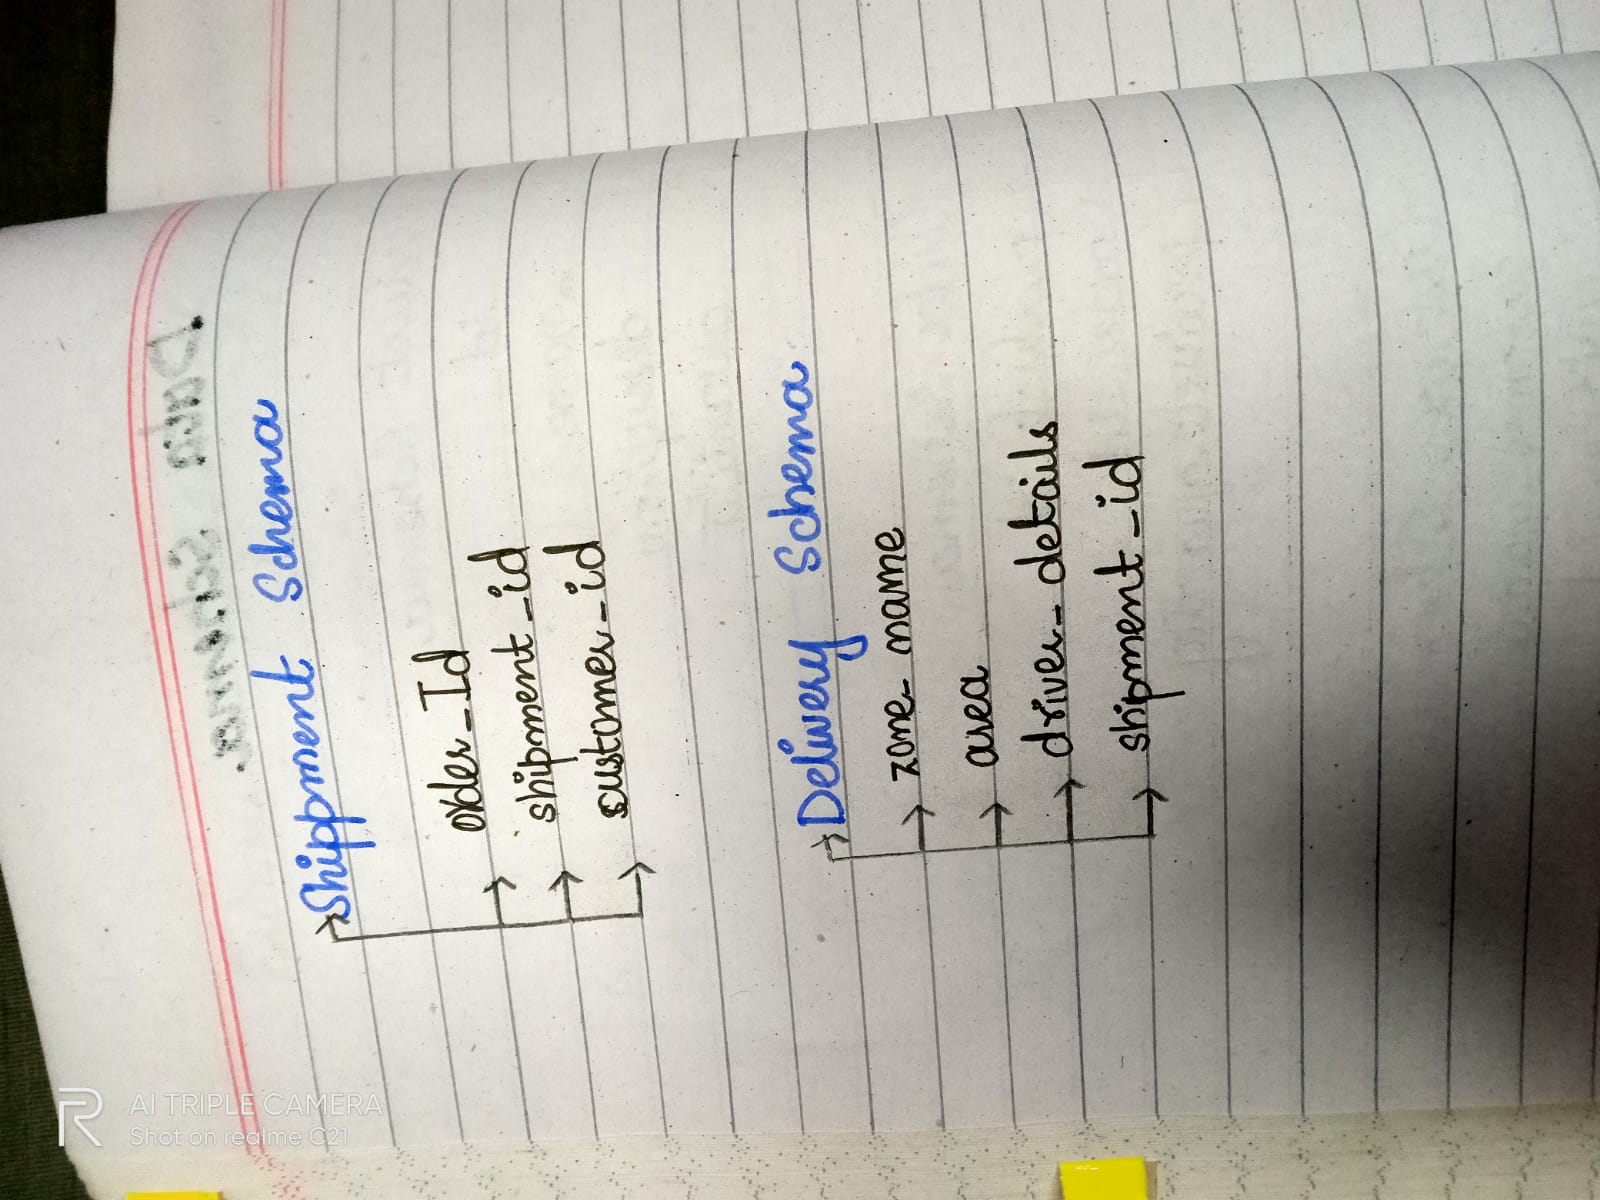 Shippment Schema
order_Id
shipment_id
customer_id
Delivery Schema
zone_name
area
driver_details
shipment_id
AI TRIPLE CAMERA
Shot on realme C21